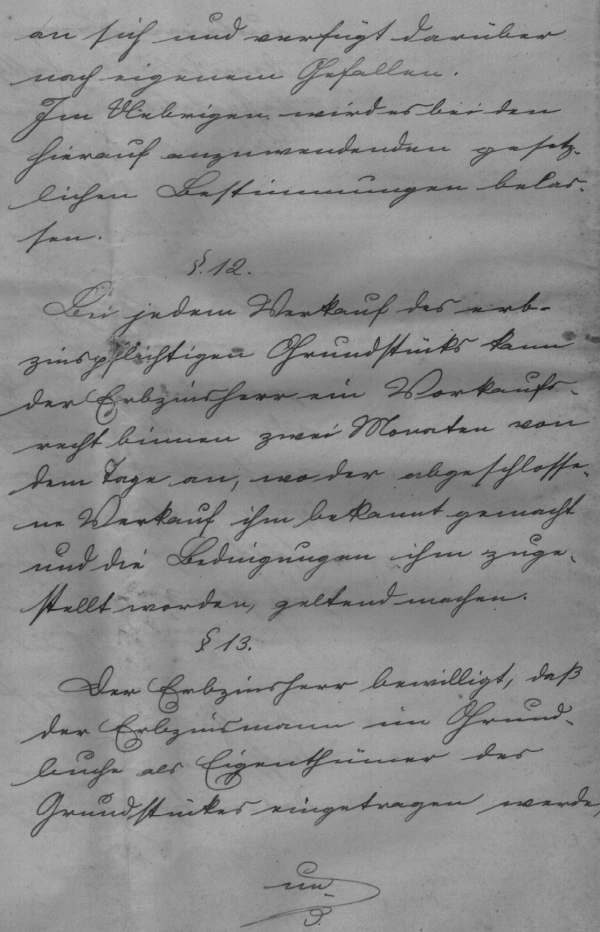 an sich und verfügt darüber
nach eigenem Gefallen.
Im Uebrigen wird es bei den
hierauf anzuwendenden gesetz-
lichen Bestimmungen belas-
sen.
§. 12.
Bei jedem Verkauf des erb-
zinspflichtigen Grundstücks kann
der Erbzinsherr ein Vorkaufs-
recht binnen zwei Monaten von
dem Tage an, wo der abgeschlosse-
ne Verkauf ihm bekannt gemacht
und die Bedingungen ihm zuge-
stellt worden, geltend machen.
§ 13.
Der Erbzinsherr bewilligt, daß
der Erbzinsmann im Grund-
buche als Eigenthümer des
Grundstückes eingetragen werde,
un-